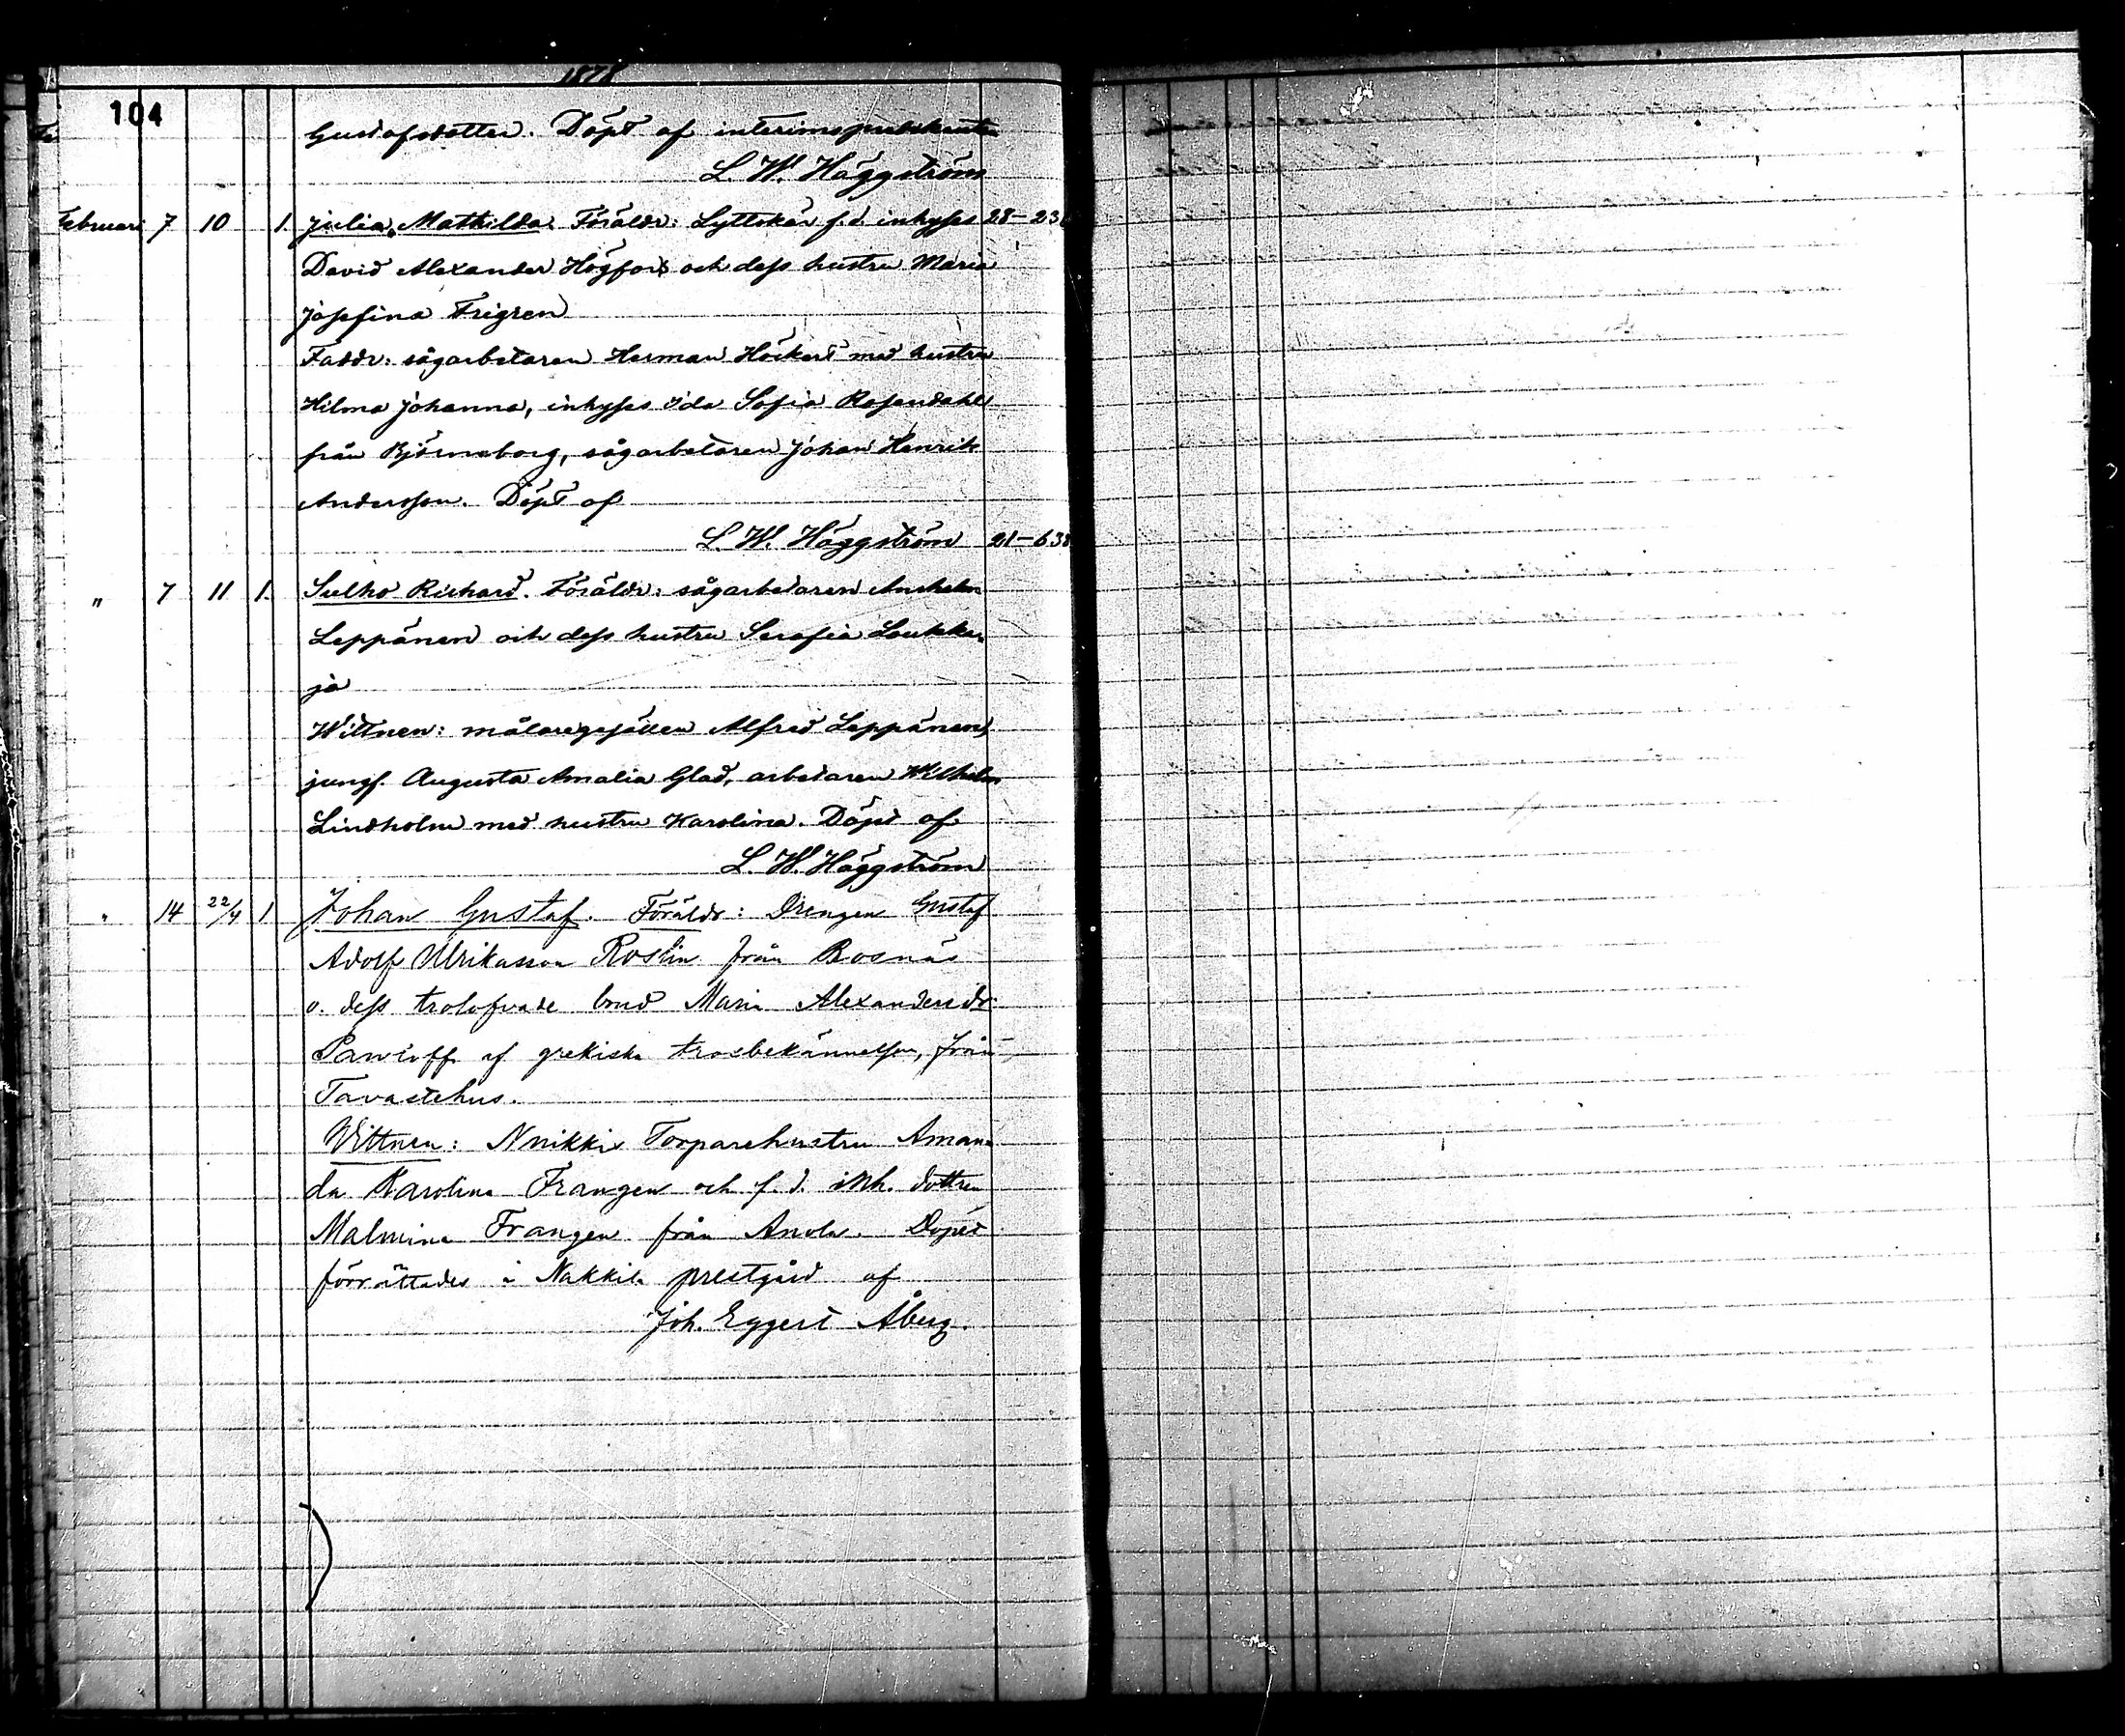 1878
104
Gustafsdotter. Döpt af interimspredikanten
L. W. Häggström
Februari 7 10 1. Julia Mathilda. Föräldr: Lyttskär f.d. inhyses 28-23
David Alexander Högfors och dess hustru Maria
Josefina Frigren
Faddr: sågarbetaren Herman Höckert med hustru
Hilma Johanna, inhyses Ida Sofia Rosendahl
från Björneborg, sågarbetaren Johan Henrik
Andersson. Döpt af
L. W. Häggström 21-638
" 7 11 1. Sulho Richard. Föräldr: sågarbetaren Anshelm
Leppänen och dess hustru Serafia Loukko
ja
Wittnen: målaregesällen Alfred Leppänen,
jungf. Augusta Amalia Glad, arbetaren Wilhelm
Lindholm med hustru Karolina. Döpt af
L. W. Häggström
" 14 22/4 1 Johan Gustaf. Föräldr: Drengen Gustaf
Adolf Ulrikasson Roslin från Rosnäs
o. dess trolofvade brud Maria Alexandersdr
Pawloff af grekiska trosbekännelsen, från
Tavastehus.
Wittnen: Nuikki Torparehustru Aman
da Karolina Frangen och f.d. inh. dottren
Malmina Frangen från Anola. Dopet
förrättades i Nakkila prestgård af
Joh. Eggert Åberg.